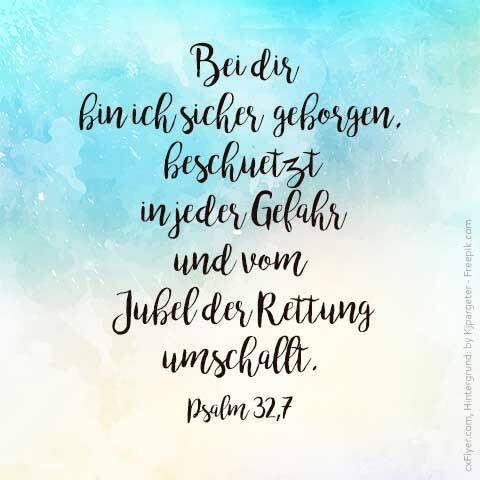 Bei dir
bin ich sicher geborgen,
beschuetzt
in jeder Gefahr
und vom
Jubel der Rettung
umschallt.
Psalm 32,7
cxFlyer.com, Hintergrund: by Kjpargeter - Freepik.com